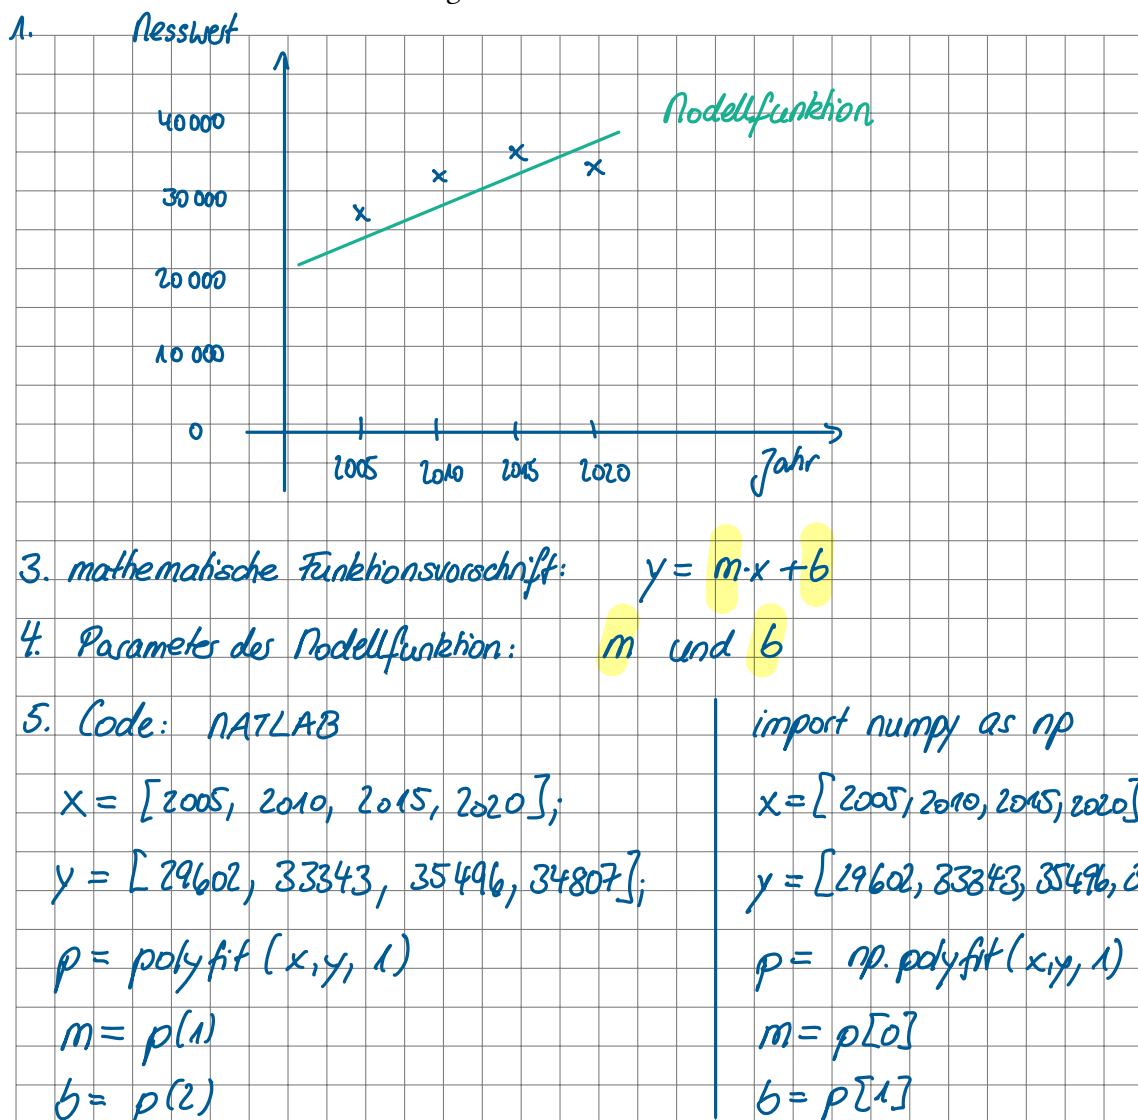 1. Messwert
40000
Modellfunktion
30000
20000
10000
0
2005 2010 2015 2020 Jahr
3. mathematische Funktionsvorschrift: y = m·x + b
4. Parameter der Modellfunktion: m und b
5. Code: MATLAB
x = [2005, 2010, 2015, 2020];
y = [29602, 33343, 35496, 34807];
p = polyfit (x,y, 1)
m = p(1)
b = p(2)
import numpy as np
x = [2005, 2010, 2015, 2020]
y = [29602, 33343, 35496, 3
p = np.polyfit(x,y, 1)
m = p[0]
b = p[1]